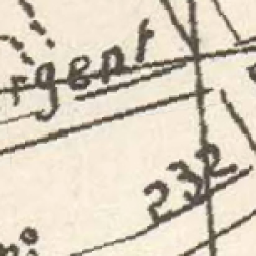 rgent
232